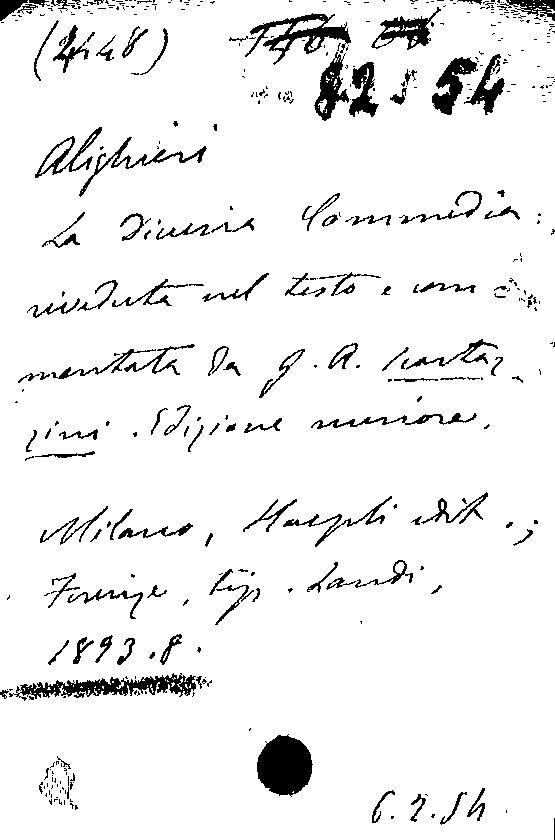 (2448)
82 J 54
Alighieri
La Divina Commedia:
riveduta nel testo e com
mentata da G. A. Scartaz-
zini. Edizione minore.
Milano, Hoepli edit.;
Firenze, tip. Landi,
1893. 8.
6.2.54